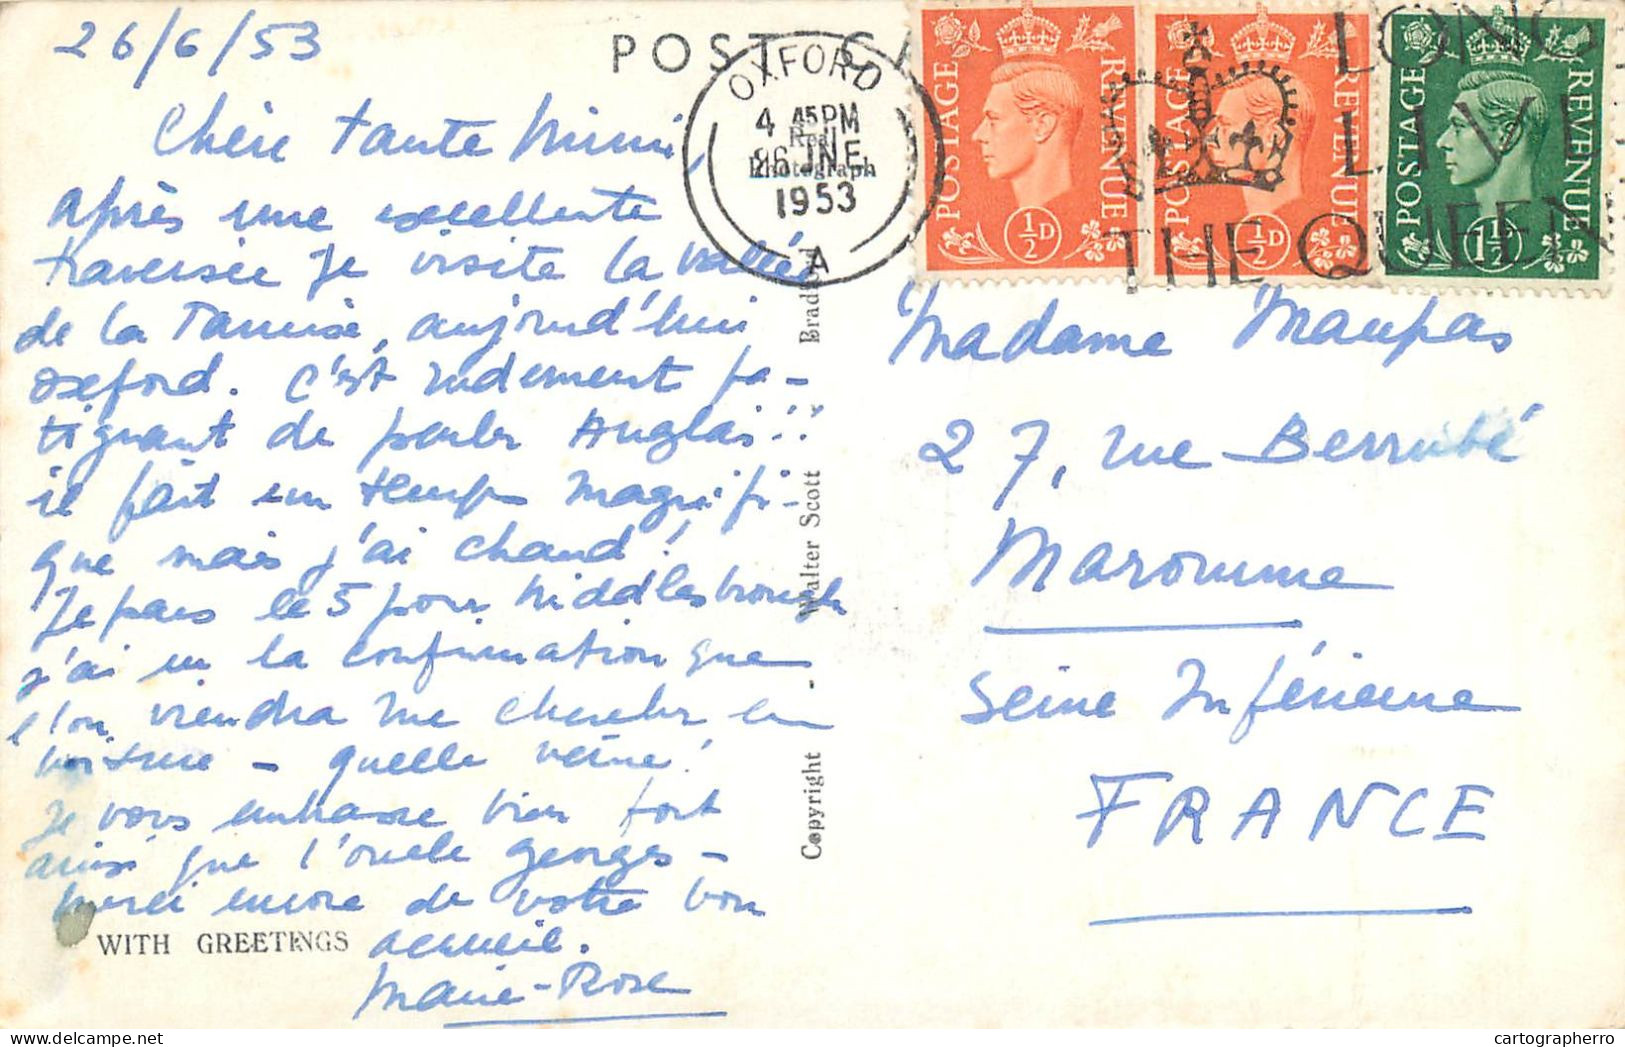 26/6/53
POST CA
OXFORD
4 45 PM
26 JNE
1953
A
Real
Photograph
POSTAGE REVENUE
½D
POSTAGE REVENUE
½D
POSTAGE REVENUE
1½D
LONG
LIVE
THE QUEEN
Chère tante Mimi,
après une excellente
traversée je visite la vallée
de la Tamise, aujourd'hui
Oxford. C'est rudement fa-
tigant de parler Anglais!!
il fait un temps magnifi-
que mais j'ai chaud!
Je pars le 5 pour Middlesbrough
j'ai eu la confirmation que
l'on viendra me chercher en
voiture - quelle veine!
Je vous embrasse bien fort
ainsi que l'oncle Georges -
Merci encore de votre bon
accueil.
Marie-Rose
WITH GREETINGS
Copyright - Walter Scott Bradford
Madame Maupas
27, rue Berrubé
Maromme
Seine Inférieure
FRANCE
cartographerro